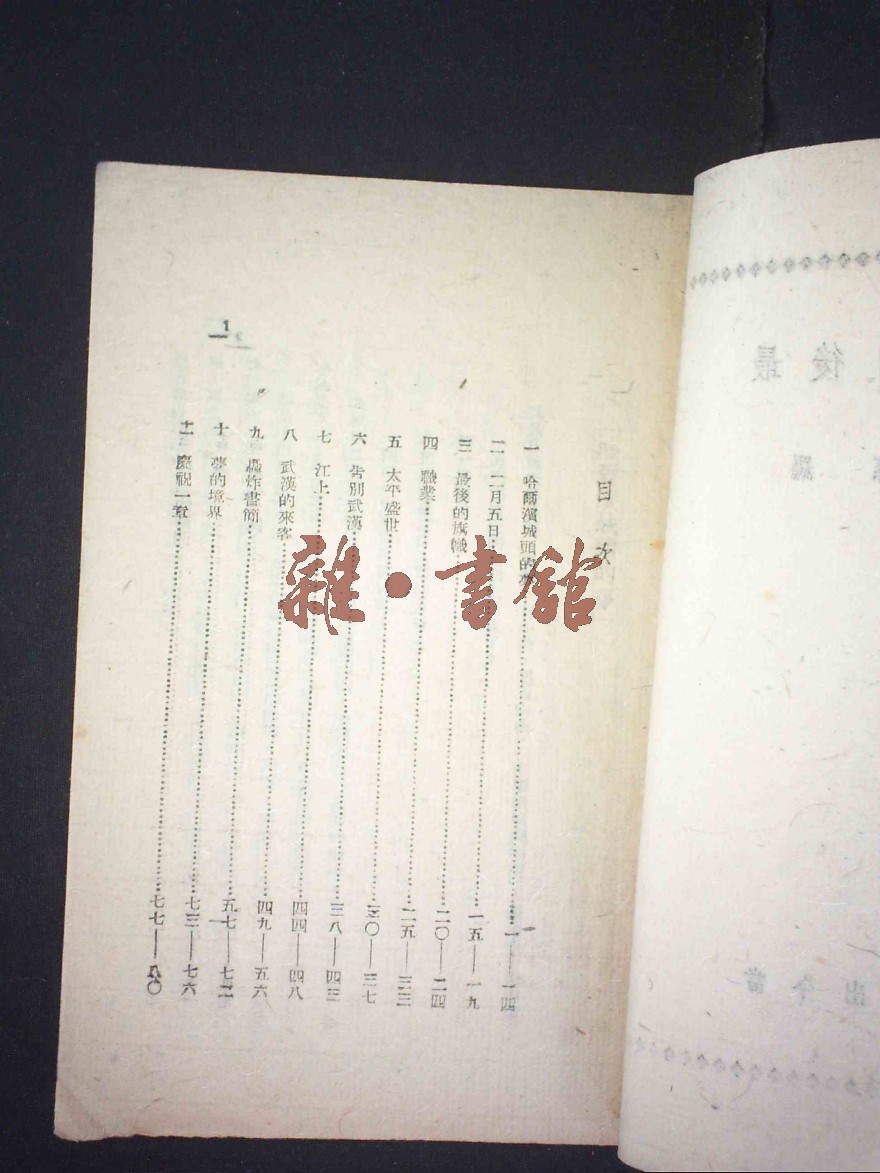 最後
羅
當今出
目次
一 哈爾濱城頭的……一——一四
二 二月五日……一五——一九
三 最後的旗幟……二〇——二四
四 職業……二五——三三
五 太平盛世……三〇——三七
六 告別武漢……三八——四三
七 江上……四四——四八
八 武漢的來客……四九——五六
九 轟炸書簡……五七——七二
十 夢的境界……七三——七六
十一 慶祝一章……七七——八〇
1
雜·書館